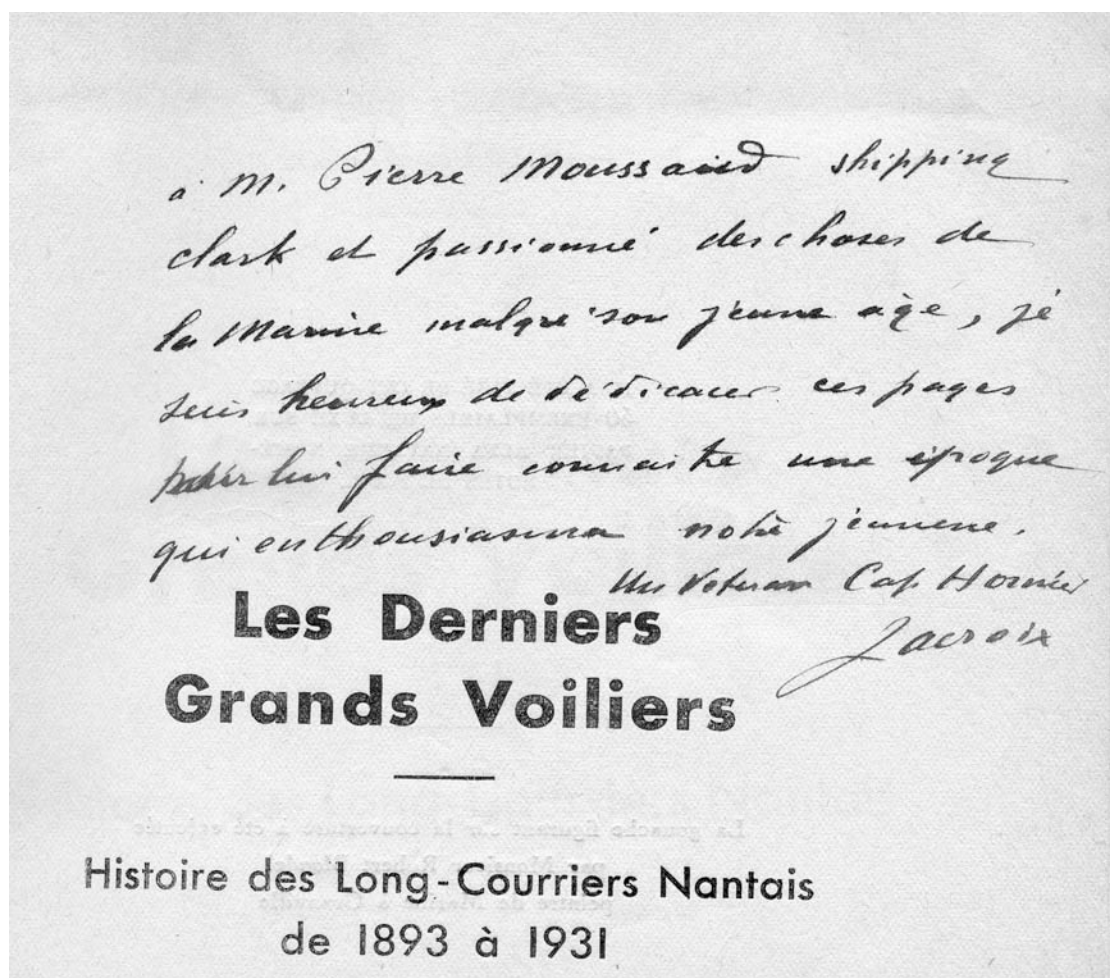 à M. Pierre Moussaud shipping
clark et passionné des choses de
la Marine malgré son jeune age, je
suis heureux de dédicacer ces pages
pour lui faire connaitre une époque
qui enthousiasma notre jeunesse.
Un Veteran Cap Hornier
Lacroix
Les Derniers
Grands Voiliers
Histoire des Long-Courriers Nantais
de 1893 à 1931